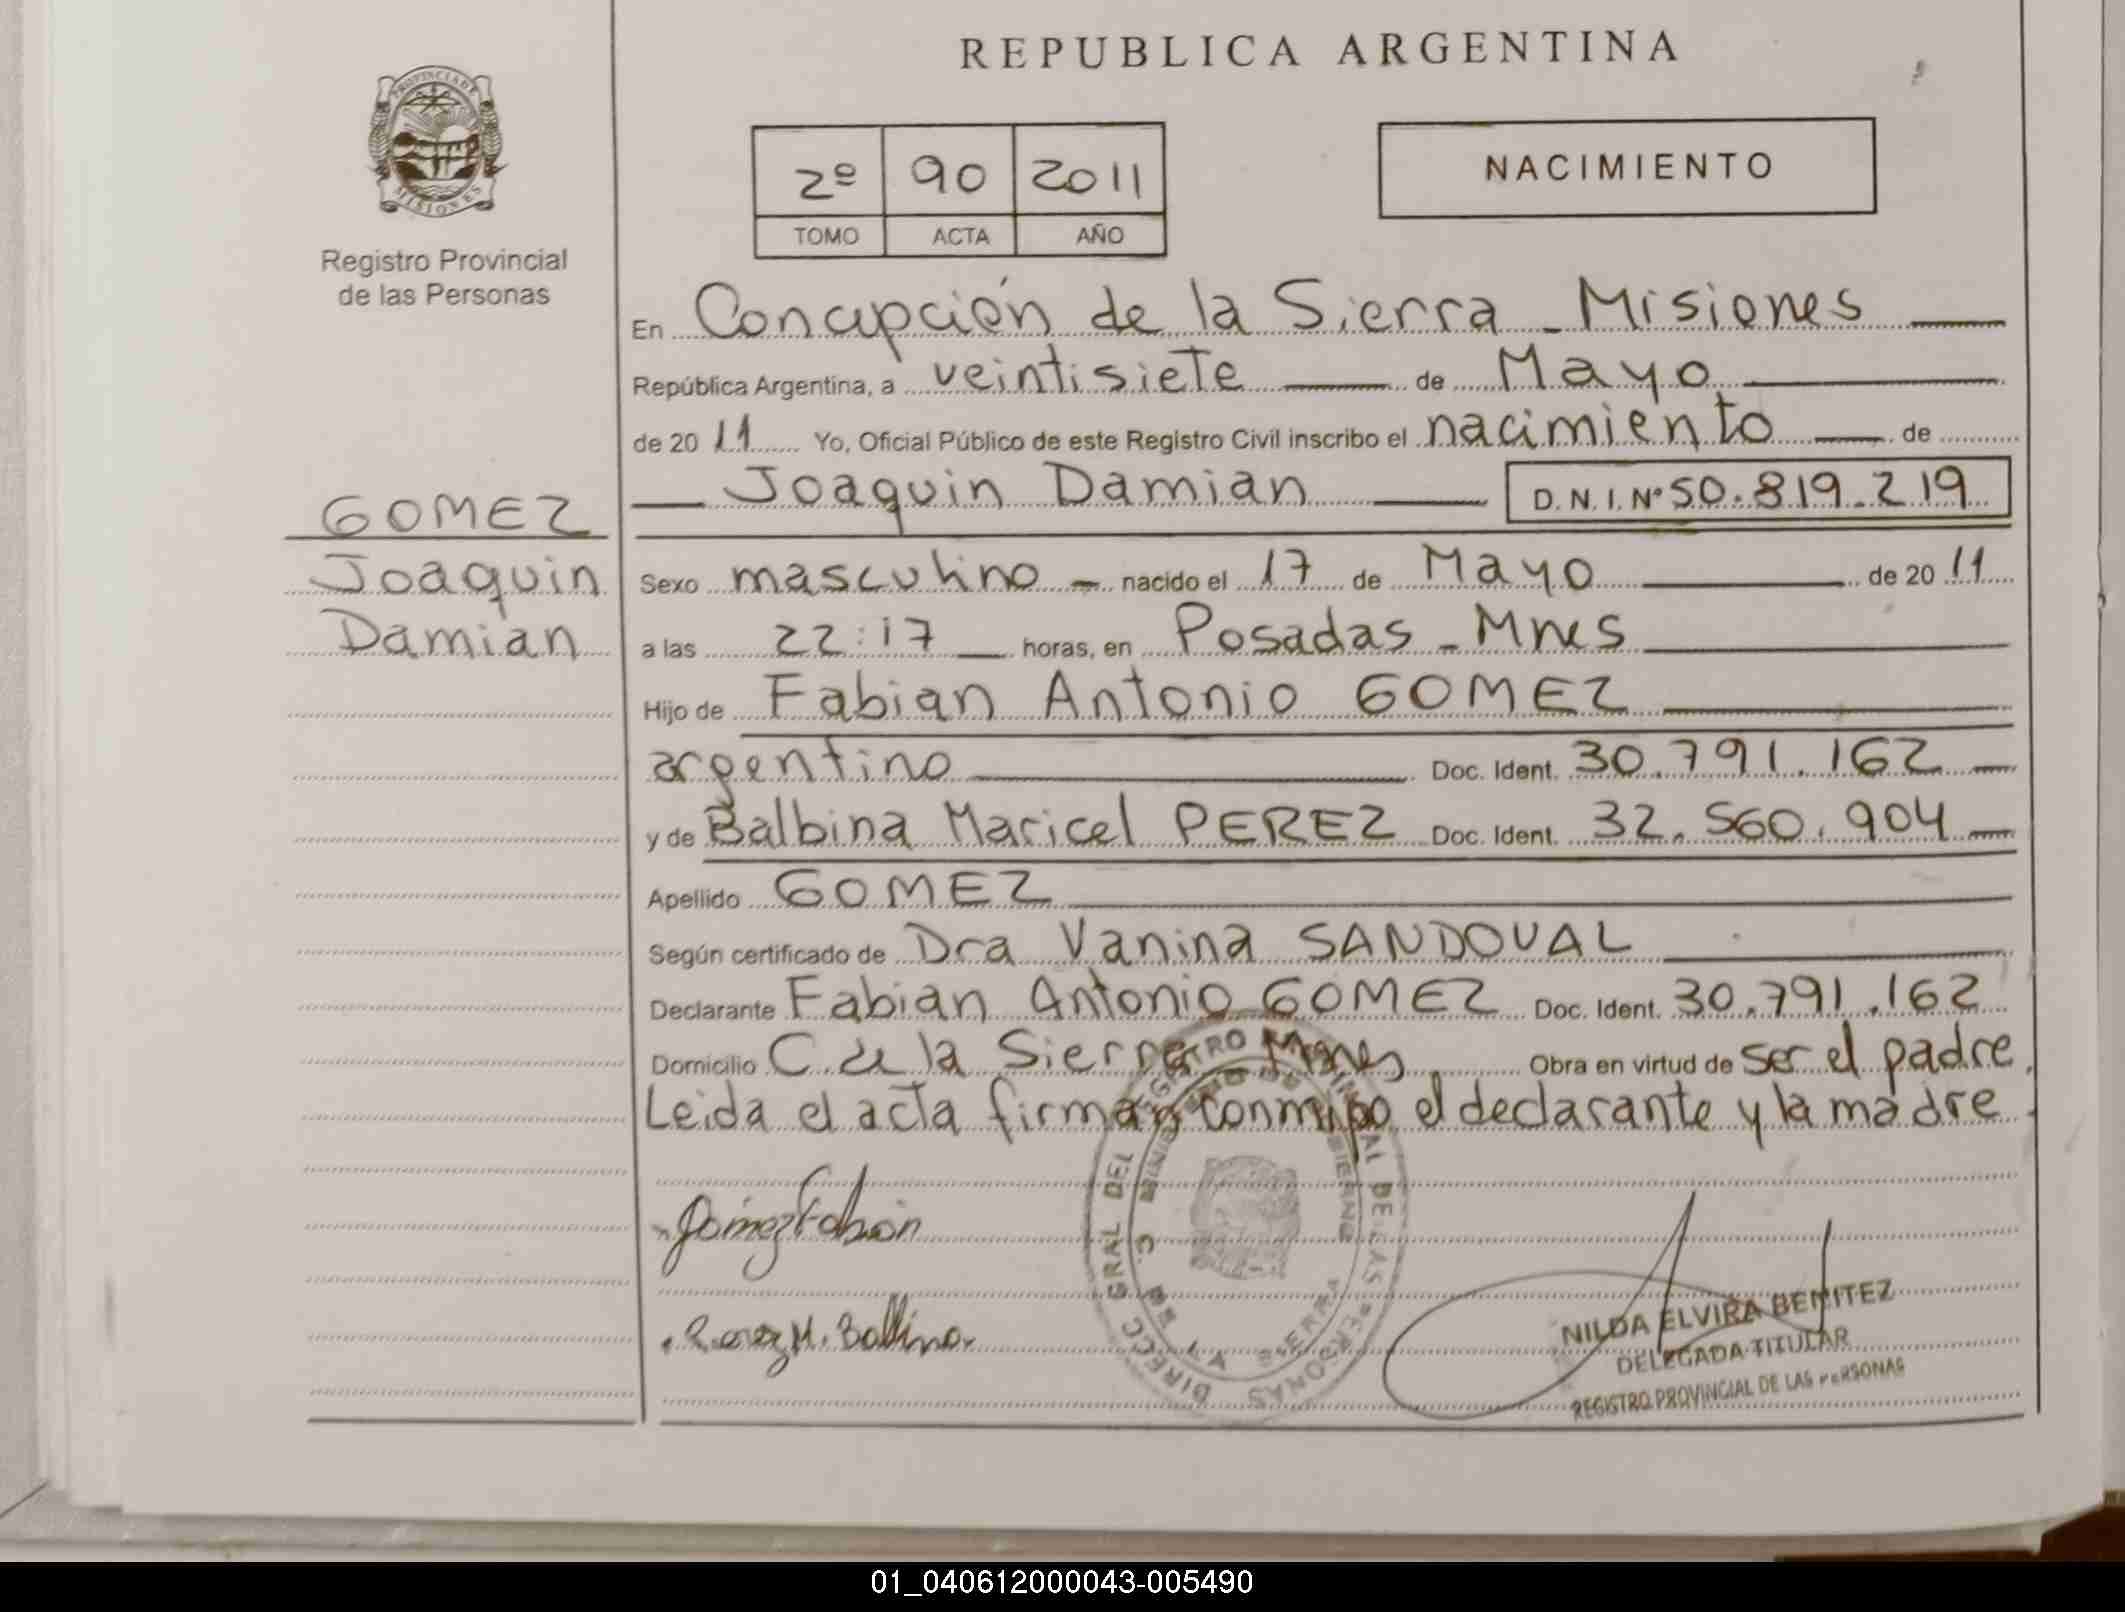 REPUBLICA ARGENTINA
PROVINCIA DE
MISIONES
Registro Provincial
de las Personas
2º 90 2011
TOMO ACTA AÑO
NACIMIENTO
En Concepción de la Sierra - Misiones
República Argentina, a veintisiete de Mayo
de 20 11 Yo, Oficial Público de este Registro Civil inscribo el nacimiento de
Joaquin Damian D.N.I.Nº 50.819.219
GOMEZ
Joaquin
Damian
Sexo masculino - nacido el 17 de Mayo de 20 11
a las 22:17 horas, en Posadas - Mnes
Hijo de Fabian Antonio GOMEZ
argentino Doc. Ident. 30.791.162
y de Balbina Maricel PEREZ Doc. Ident. 32.560.904
Apellido GOMEZ
Según certificado de Dra Vanina SANDOVAL
Declarante Fabian Antonio GOMEZ Doc. Ident. 30.791.162
Domicilio C de la Sierra Mnes Obra en virtud de ser el padre.
Leida el acta firman conmigo el declarante y la madre.
Gómez Fabián
Perez M. Balbina
DIRECC GRAL DEL REGISTRO PROVINCIAL DE LAS PERSONAS
C. DE LA SIERRA
NILDA ELVIRA BENITEZ
DELEGADA TITULAR
REGISTRO PROVINCIAL DE LAS PERSONAS
01_040612000043-005490